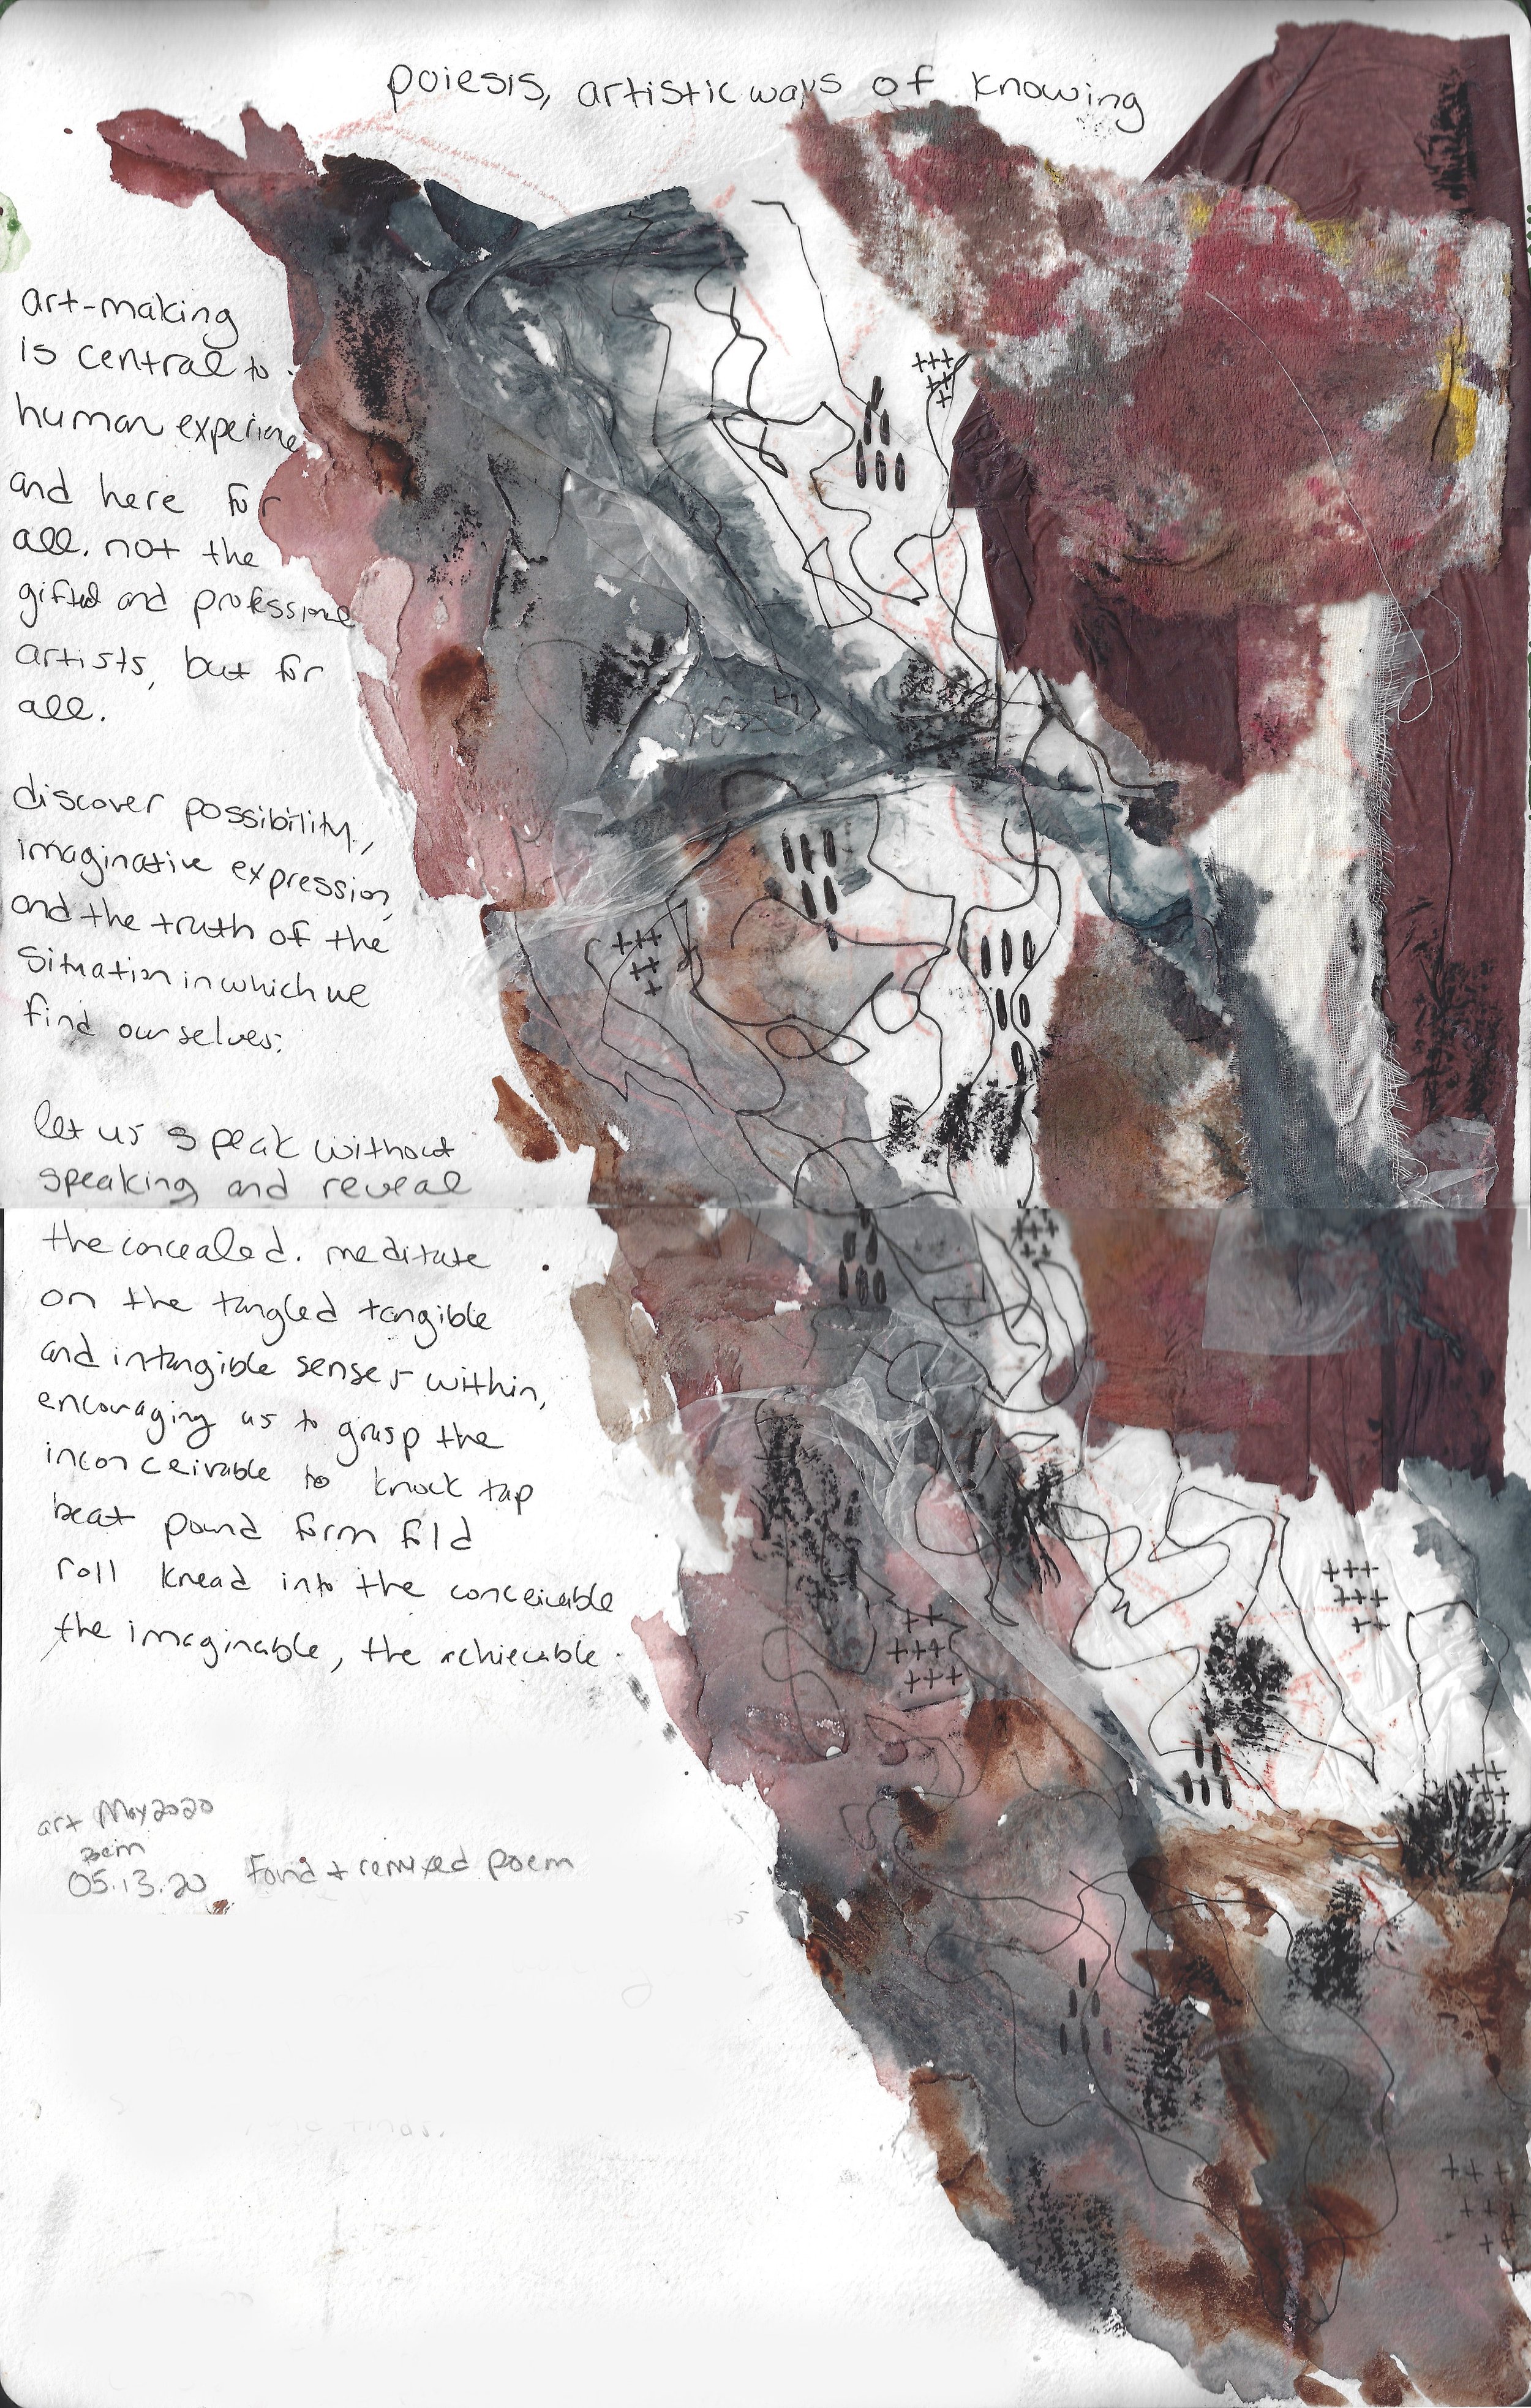 poiesis, artistic ways of knowing
art-making
is central to
human experience
and here for
all. not the
gifted and professional
artists, but for
all.
discover possibility,
imaginative expression,
and the truth of the
situation in which we
find ourselves.
let us speak without
speaking and reveal
the concealed. meditate
on the tangled tangible
and intangible senses within,
encouraging us to grasp the
inconceivable to knock tap
beat pound form fold
roll knead into the conceivable
the imaginable, the achievable.
art May 2020
poem
05.13.20 Found + remixed poem